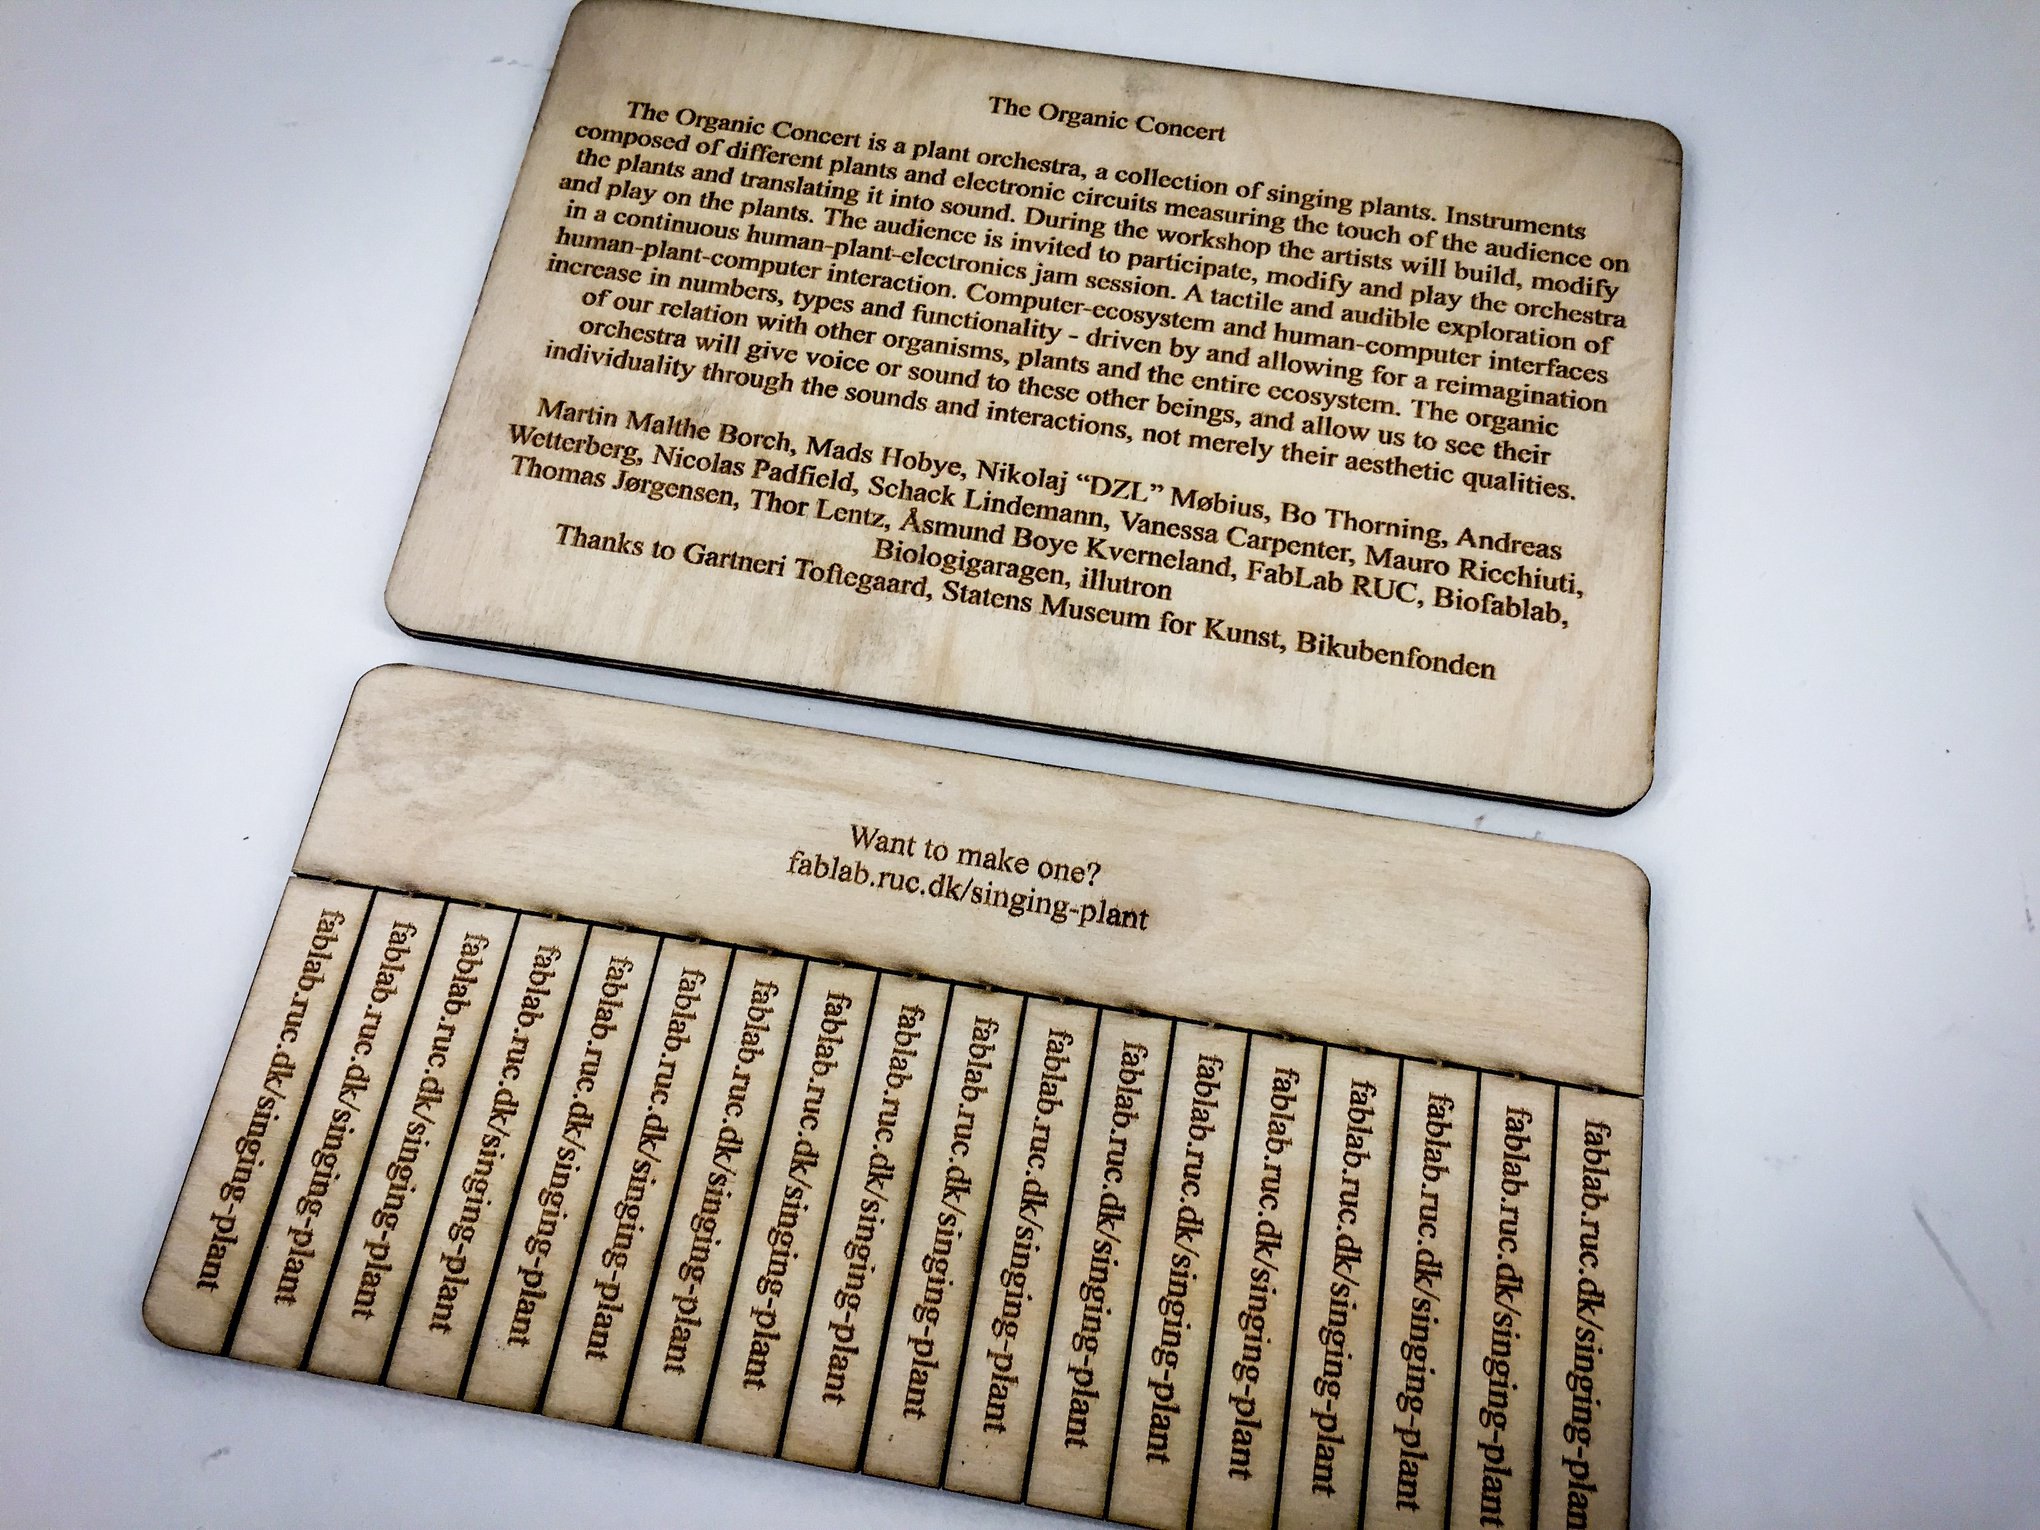 The Organic Concert
The Organic Concert is a plant orchestra, a collection of singing plants. Instruments
composed of different plants and electronic circuits measuring the touch of the audience on
the plants and translating it into sound. During the workshop the artists will build, modify
and play on the plants. The audience is invited to participate, modify and play the orchestra
in a continuous human-plant-electronics jam session. A tactile and audible exploration of
human-plant-computer interaction. Computer-ecosystem and human-computer interfaces
increase in numbers, types and functionality - driven by and allowing for a reimagination
of our relation with other organisms, plants and the entire ecosystem. The organic
orchestra will give voice or sound to these other beings, and allow us to see their
individuality through the sounds and interactions, not merely their aesthetic qualities.
Martin Malthe Borch, Mads Hobye, Nikolaj “DZL” Møbius, Bo Thorning, Andreas
Wetterberg, Nicolas Padfield, Schack Lindemann, Vanessa Carpenter, Mauro Ricchiuti,
Thomas Jørgensen, Thor Lentz, Åsmund Boye Kverneland, FabLab RUC, Biofablab,
Biologigaragen, illutron
Thanks to Gartneri Toftegaard, Statens Museum for Kunst, Bikubenfonden
Want to make one?
fablab.ruc.dk/singing-plant
fablab.ruc.dk/singing-plant
fablab.ruc.dk/singing-plant
fablab.ruc.dk/singing-plant
fablab.ruc.dk/singing-plant
fablab.ruc.dk/singing-plant
fablab.ruc.dk/singing-plant
fablab.ruc.dk/singing-plant
fablab.ruc.dk/singing-plant
fablab.ruc.dk/singing-plant
fablab.ruc.dk/singing-plant
fablab.ruc.dk/singing-plant
fablab.ruc.dk/singing-plant
fablab.ruc.dk/singing-plant
fablab.ruc.dk/singing-plant
fablab.ruc.dk/singing-plant
fablab.ruc.dk/singing-plant
fablab.ruc.dk/singing-plant
fablab.ruc.dk/singing-plan